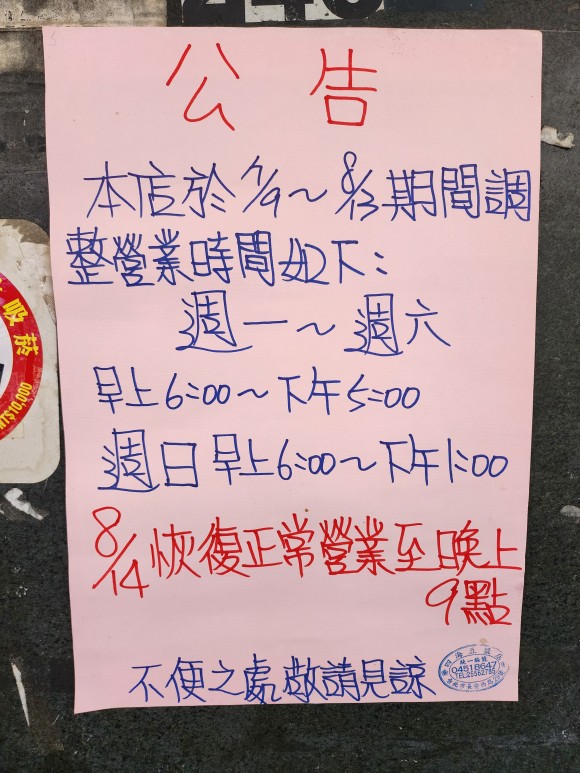 公告
本店於7/9～8/13期間調
整營業時間如下：
週一～週六
早上6:00～下午5:00
週日早上6:00～下午1:00
8/14恢復正常營業至晚上
9點
不便之處敬請見諒
統一編號
04518647
吸菸
NT$10,000